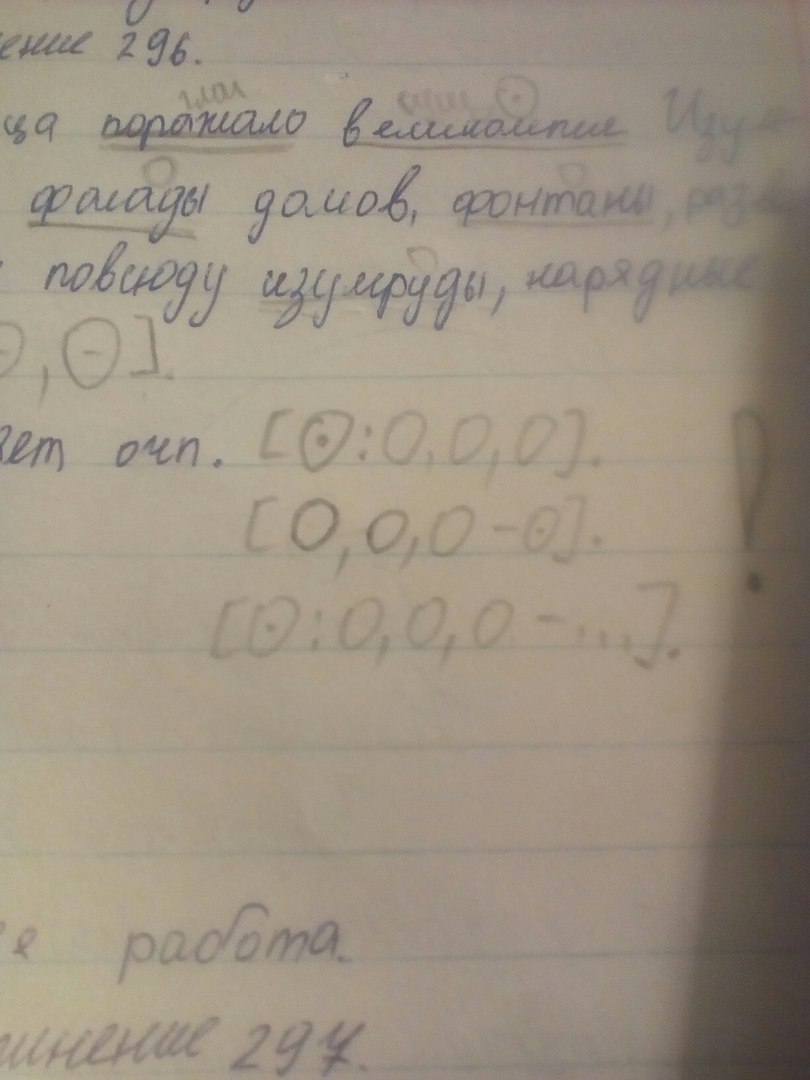 ение 296.
глаг сущ
ца поражало великолепие Изум
фасады домов, фонтаны, разв
повсюду изумруды, нарядные
, ⊖].
ет очп. [⊙: О, О, О].
[О, О, О – ⊙]. !
[⊙: О, О, О – ...].
я работа.
жнение 297.